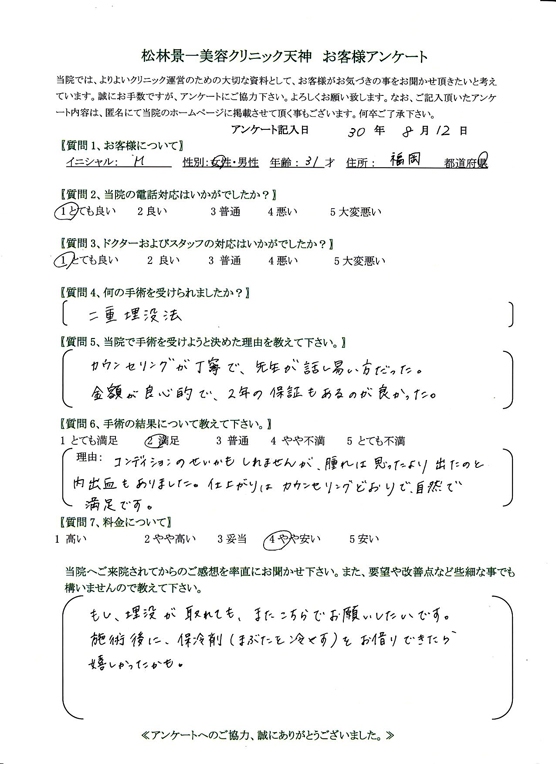 松林景一美容クリニック天神 お客様アンケート
当院では、よりよいクリニック運営のための大切な資料として、お客様がお気づきの事をお聞かせ頂きたいと考え
ています。誠にお手数ですが、アンケートにご協力下さい。よろしくお願い致します。なお、ご記入頂いたアンケ
ート内容は、匿名にて当院のホームページに掲載させて頂く事もございます。何卒ご了承下さい。
アンケート記入日 30 年 8 月 12 日
〖質問 1、お客様について〗
イニシャル: M 性別:女性・男性 年齢:31才 住所: 福岡 都道府県
〖質問 2、当院の電話対応はいかがでしたか?〗
1 とても良い 2 良い 3 普通 4 悪い 5 大変悪い
〖質問 3、ドクターおよびスタッフの対応はいかがでしたか?〗
1 とても良い 2 良い 3 普通 4 悪い 5 大変悪い
〖質問 4、何の手術を受けられましたか?〗
二重埋没法
〖質問 5、当院で手術を受けようと決めた理由を教えて下さい。〗
カウンセリングが丁寧で、先生が話し易い方だった。
金額が良心的で、2年の保証もあるのが良かった。
〖質問 6、手術の結果について教えて下さい。〗
1 とても満足 2 満足 3 普通 4 やや不満 5 とても不満
理由: コンディションのせいかもしれませんが、腫れは思ったより出たのと
内出血もありました。仕上がりはカウンセリングどおりで、自然で
満足です。
〖質問 7、料金について〗
1 高い 2 やや高い 3 妥当 4 やや安い 5 安い
当院へご来院されてからのご感想を率直にお聞かせ下さい。また、要望や改善点など些細な事でも
構いませんので教えて下さい。
もし、埋没が取れても、またこちらでお願いしたいです。
施術後に、保冷剤(まぶたを冷やす)をお借りできたら
嬉しかったかも。
≪アンケートへのご協力、誠にありがとうございました。≫